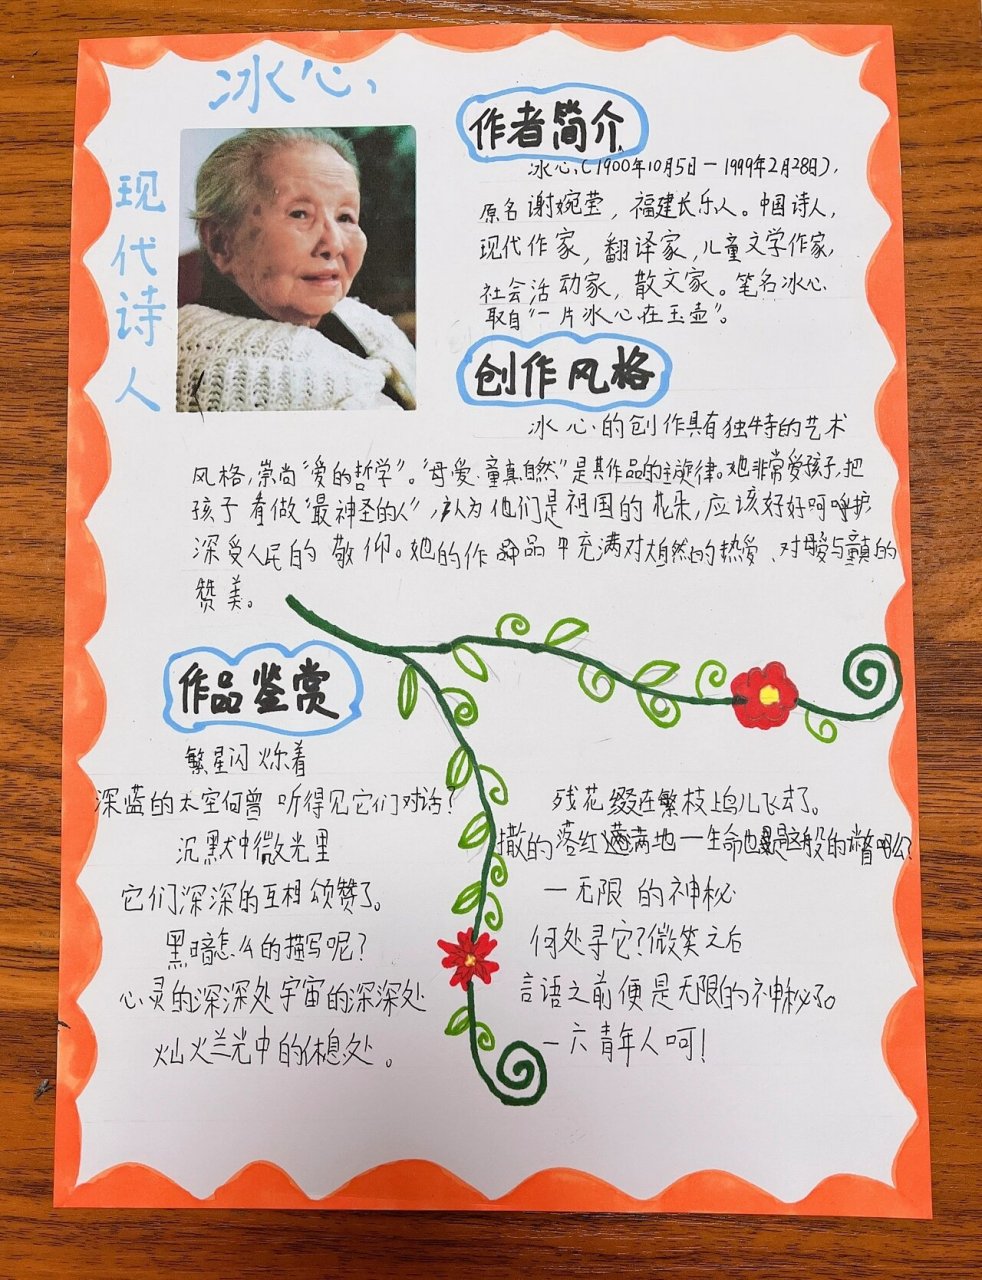 冰心
现代诗人
作者简介
冰心(1900年10月5日一1999年2月28日),
原名谢婉莹，福建长乐人。中国诗人,
现代作家，翻译家,儿童文学作家,
社会活动家，散文家。笔名冰心
取自“一片冰心在玉壶”。
创作风格
冰心的创作具有独特的艺术
风格,崇尚“爱的哲学”。“母爱.童真自然”是其作品的主旋律。她非常爱孩子,把
孩子看做“最神圣的人”,认为他们是祖国的花朵,应该好好呵呼护
深受人民的敬仰。她的作品中充满对大自然的热爱、对母爱与童真的
赞美。
作品鉴赏
繁星闪烁着
深蓝的太空何曾听得见它们对话?
沉默中微光里
它们深深的互相颂赞了。
黑暗怎么的描写呢?
心灵的深深处宇宙的深深处
灿烂光中的休息处。
残花缀在繁枝上鸟儿飞去了。
撒的落红满地一生命也是这般的一瞥吗么?
一无限的神秘
何处寻它?微笑之后
言语之前便是无限的神秘了。
一六青年人呵!